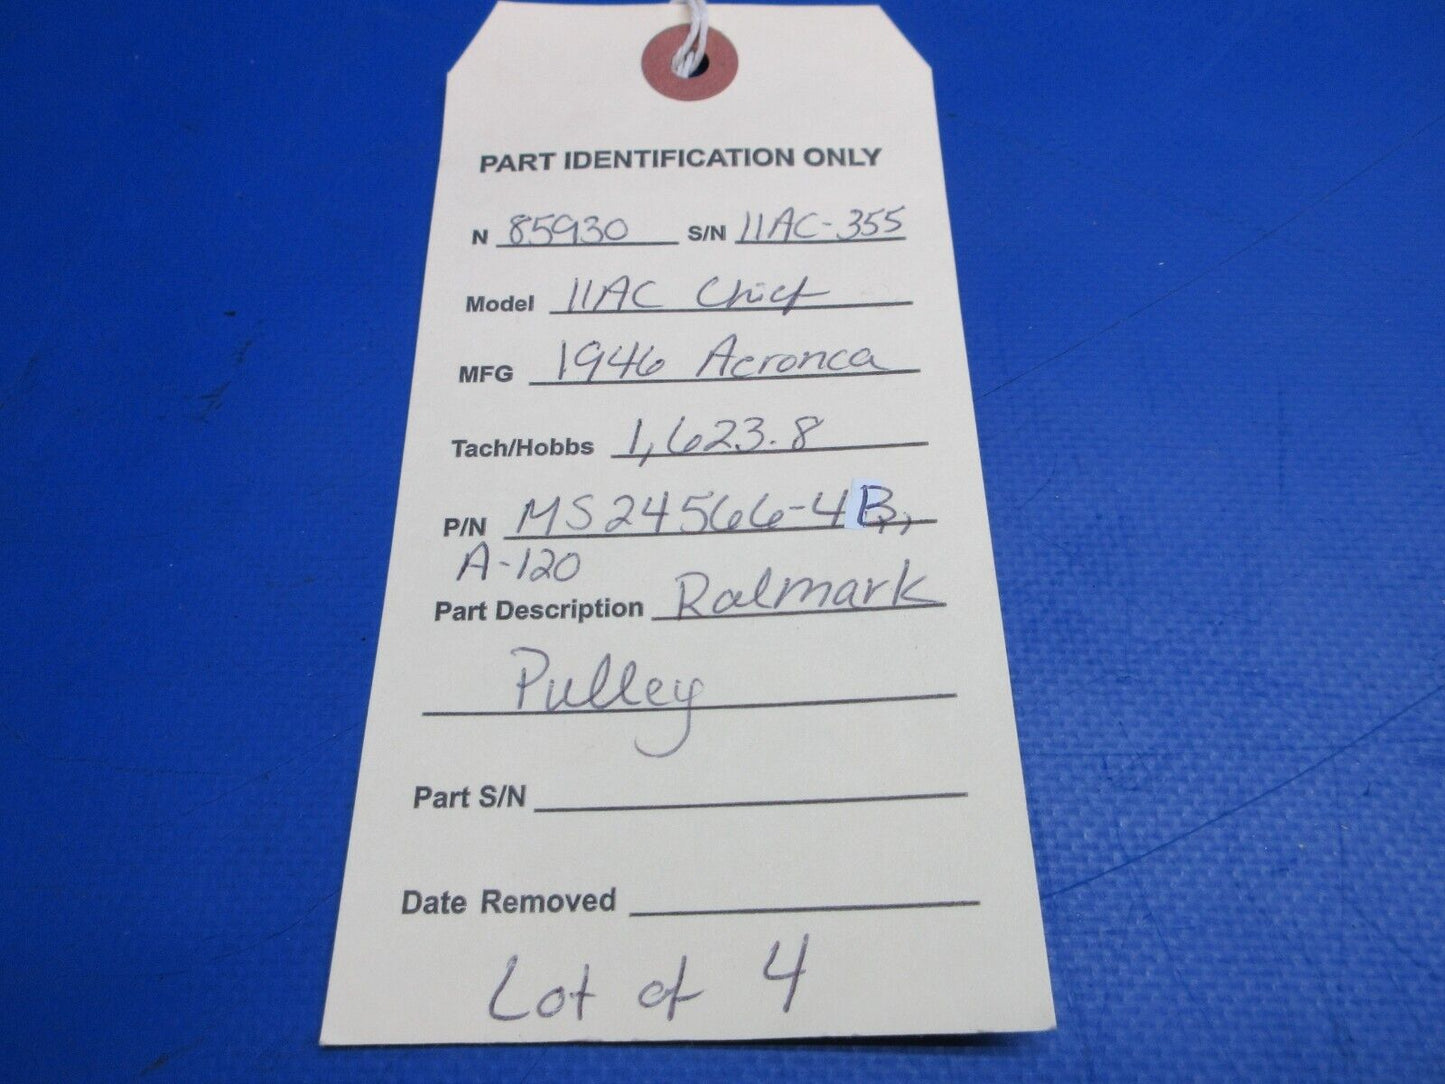 PART IDENTIFICATION ONLY
N 85930 S/N 11AC-355
Model 11AC Chief
MFG 1946 Aeronca
Tach/Hobbs 1,623.8
P/N MS24566-4B,
A-120
Part Description Ralmark
Pulley
Part S/N
Date Removed
Lot of 4